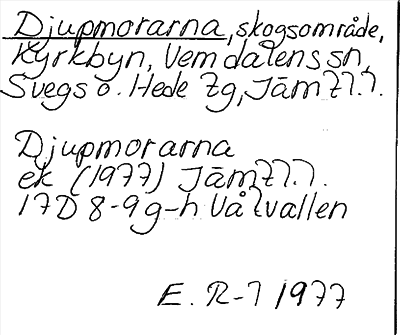 Djupmorarna, skogsområde,
Kyrkbyn, Vemdalens sn,
Svegs o. Hede tg, Jämtl. l.
Djupmorarna
ek (1977) Jämtl. l.
17D 8-9 g-h Våtvallen
E. R-l 1977